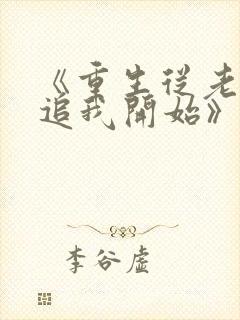 《重生從老
追我開始》
李谷虛